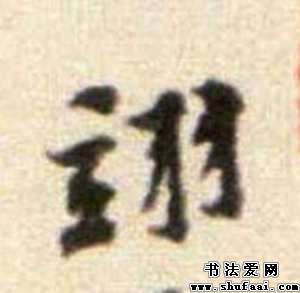 詡
书法爱网
www.shufaai.com